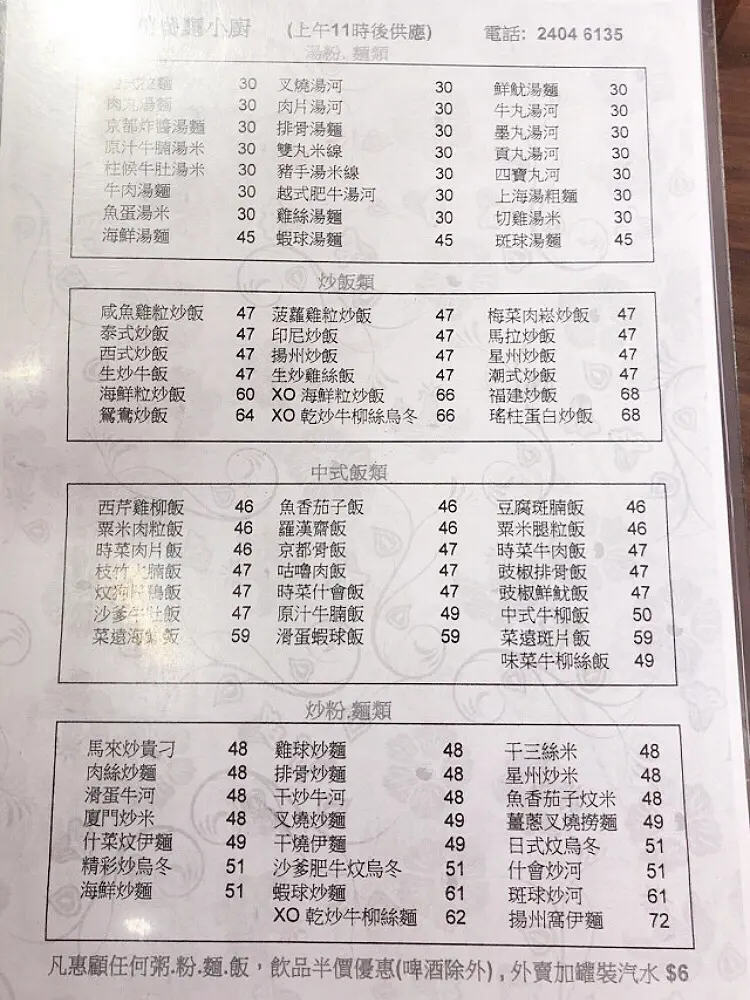 小廚 (上午11時後供應) 電話: 2404 6135
湯粉.麵類
麵 30 叉燒湯河 30 鮮魷湯麵 30
肉丸湯麵 30 肉片湯河 30 牛丸湯河 30
京都炸醬湯麵 30 排骨湯麵 30 墨丸湯河 30
原汁牛腩湯米 30 雙丸米線 30 貢丸湯河 30
柱候牛肚湯米 30 豬手湯米線 30 四寶丸河 30
牛肉湯麵 30 越式肥牛湯河 30 上海湯粗麵 30
魚蛋湯米 30 雞絲湯麵 30 切雞湯米 30
海鮮湯麵 45 蝦球湯麵 45 斑球湯麵 45
炒飯類
咸魚雞粒炒飯 47 菠蘿雞粒炒飯 47 梅菜肉崧炒飯 47
泰式炒飯 47 印尼炒飯 47 馬拉炒飯 47
西式炒飯 47 揚州炒飯 47 星州炒飯 47
生炒牛飯 47 生炒雞絲飯 47 潮式炒飯 47
海鮮粒炒飯 60 XO 海鮮粒炒飯 66 福建炒飯 68
鴛鴦炒飯 64 XO 乾炒牛柳絲烏冬 66 瑤柱蛋白炒飯 68
中式飯類
西芹雞柳飯 46 魚香茄子飯 46 豆腐斑腩飯 46
粟米肉粒飯 46 羅漢齋飯 46 粟米腿粒飯 46
時菜肉片飯 46 京都骨飯 47 時菜牛肉飯 47
枝竹火腩飯 47 咕嚕肉飯 47 豉椒排骨飯 47
炆 鴨飯 47 時菜什會飯 47 豉椒鮮魷飯 47
沙爹牛肚飯 47 原汁牛腩飯 49 中式牛柳飯 50
菜遠海鮮飯 59 滑蛋蝦球飯 59 菜遠斑片飯 59
味菜牛柳絲飯 49
炒粉.麵類
馬來炒貴刁 48 雞球炒麵 48 干三絲米 48
肉絲炒麵 48 排骨炒麵 48 星州炒米 48
滑蛋牛河 48 干炒牛河 48 魚香茄子炆米 48
廈門炒米 48 叉燒炒麵 49 薑蔥叉燒撈麵 49
什菜炆伊麵 49 干燒伊麵 49 日式炆烏冬 51
精彩炒烏冬 51 沙爹肥牛炆烏冬 51 什會炒河 51
海鮮炒麵 51 蝦球炒麵 61 斑球炒河 61
XO 乾炒牛柳絲麵 62 揚州窩伊麵 72
凡惠顧任何粥.粉.麵.飯，飲品半價優惠(啤酒除外) , 外賣加罐裝汽水 $6